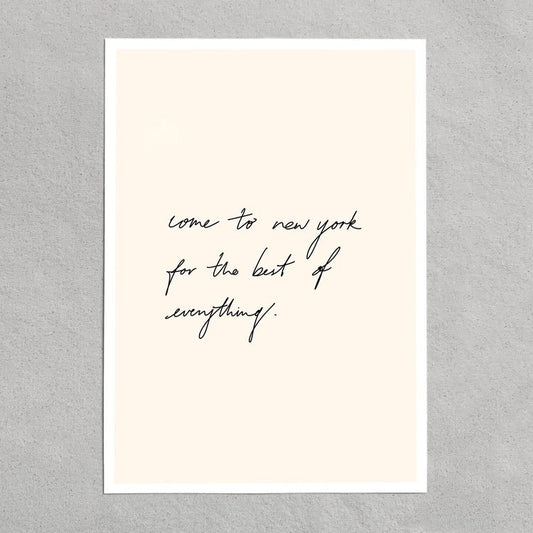 come to new york
for the best of
everything.